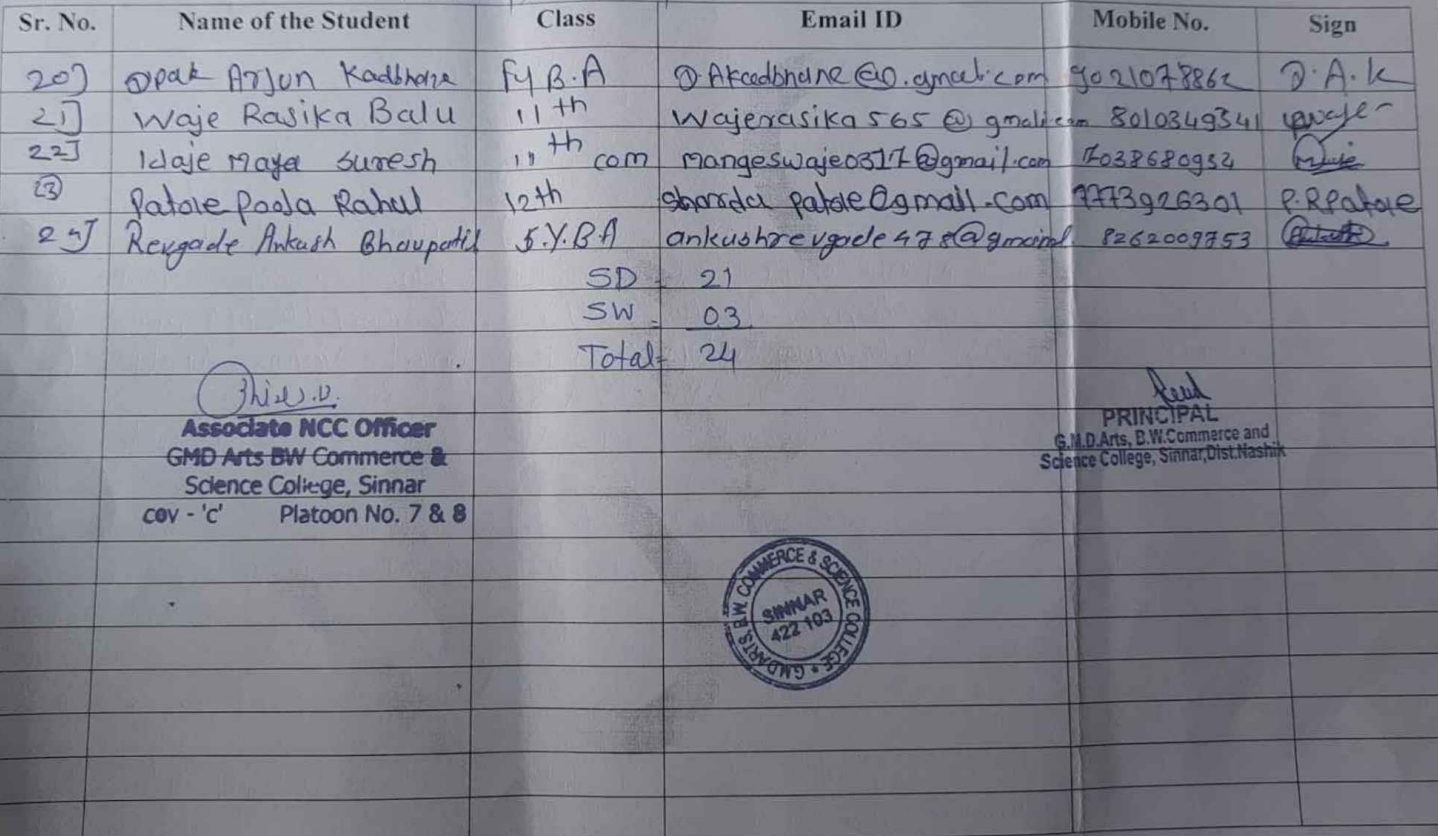 Sr. No. Name of the Student Class Email ID Mobile No. Sign
20] Arjun Kadbhane FY B.A 9021078862 D.A.K
21] Waje Rasika Balu 11th wajerasika565@gmail.com 8010349341 waje
22] Waje Maya Suresh 11th com mangeswaje0317@gmail.com 7038680952
23 Patole Pooja Rahul 12th patole@gmail.com 7773926301 P.RPatole
24] Revgade Ankush Bhaupatil S.Y.B.A 8262009753
SD - 21
SW - 03
Total= 24
Associate NCC Officer
GMD Arts BW Commerce &
Science College, Sinnar
cov - 'c' Platoon No. 7 & 8
PRINCIPAL
G.M.D.Arts, B.W.Commerce and
Science College, Sinnar,Dist.Nashik
G.M.D ARTS, B.W. COMMERCE & SCIENCE COLLEGE
SINNAR
422 103